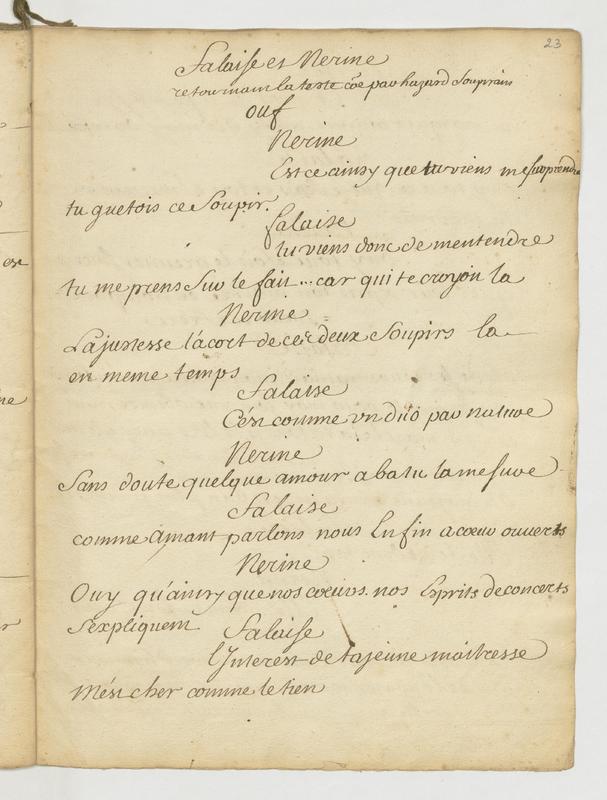 23
falaise et Nerine
retournant la teste cõe par hazard Soupirans
ouf
Nerine
Est ce ainsy que tu viens me surprendre
tu guetois ce Soupir.
falaise
tu viens donc de mentendre
tu me prens Sur le fait... car qui te croyoit la
Nerine
La justesse l'acort de ces deux Soupirs la
en meme temps
falaise
C'est comme un duo par nature
Nerine
Sans doute quelque amour a batu la mesure
falaise
comme amant parlons nous Enfin a coeur ouverts
Nerine
Ouy qu'ainsy que nos coeurs. nos Esprits de concerts
s'expliquent
falaise
l'Interest de ta jeune maitresse
M'est cher comme le tien